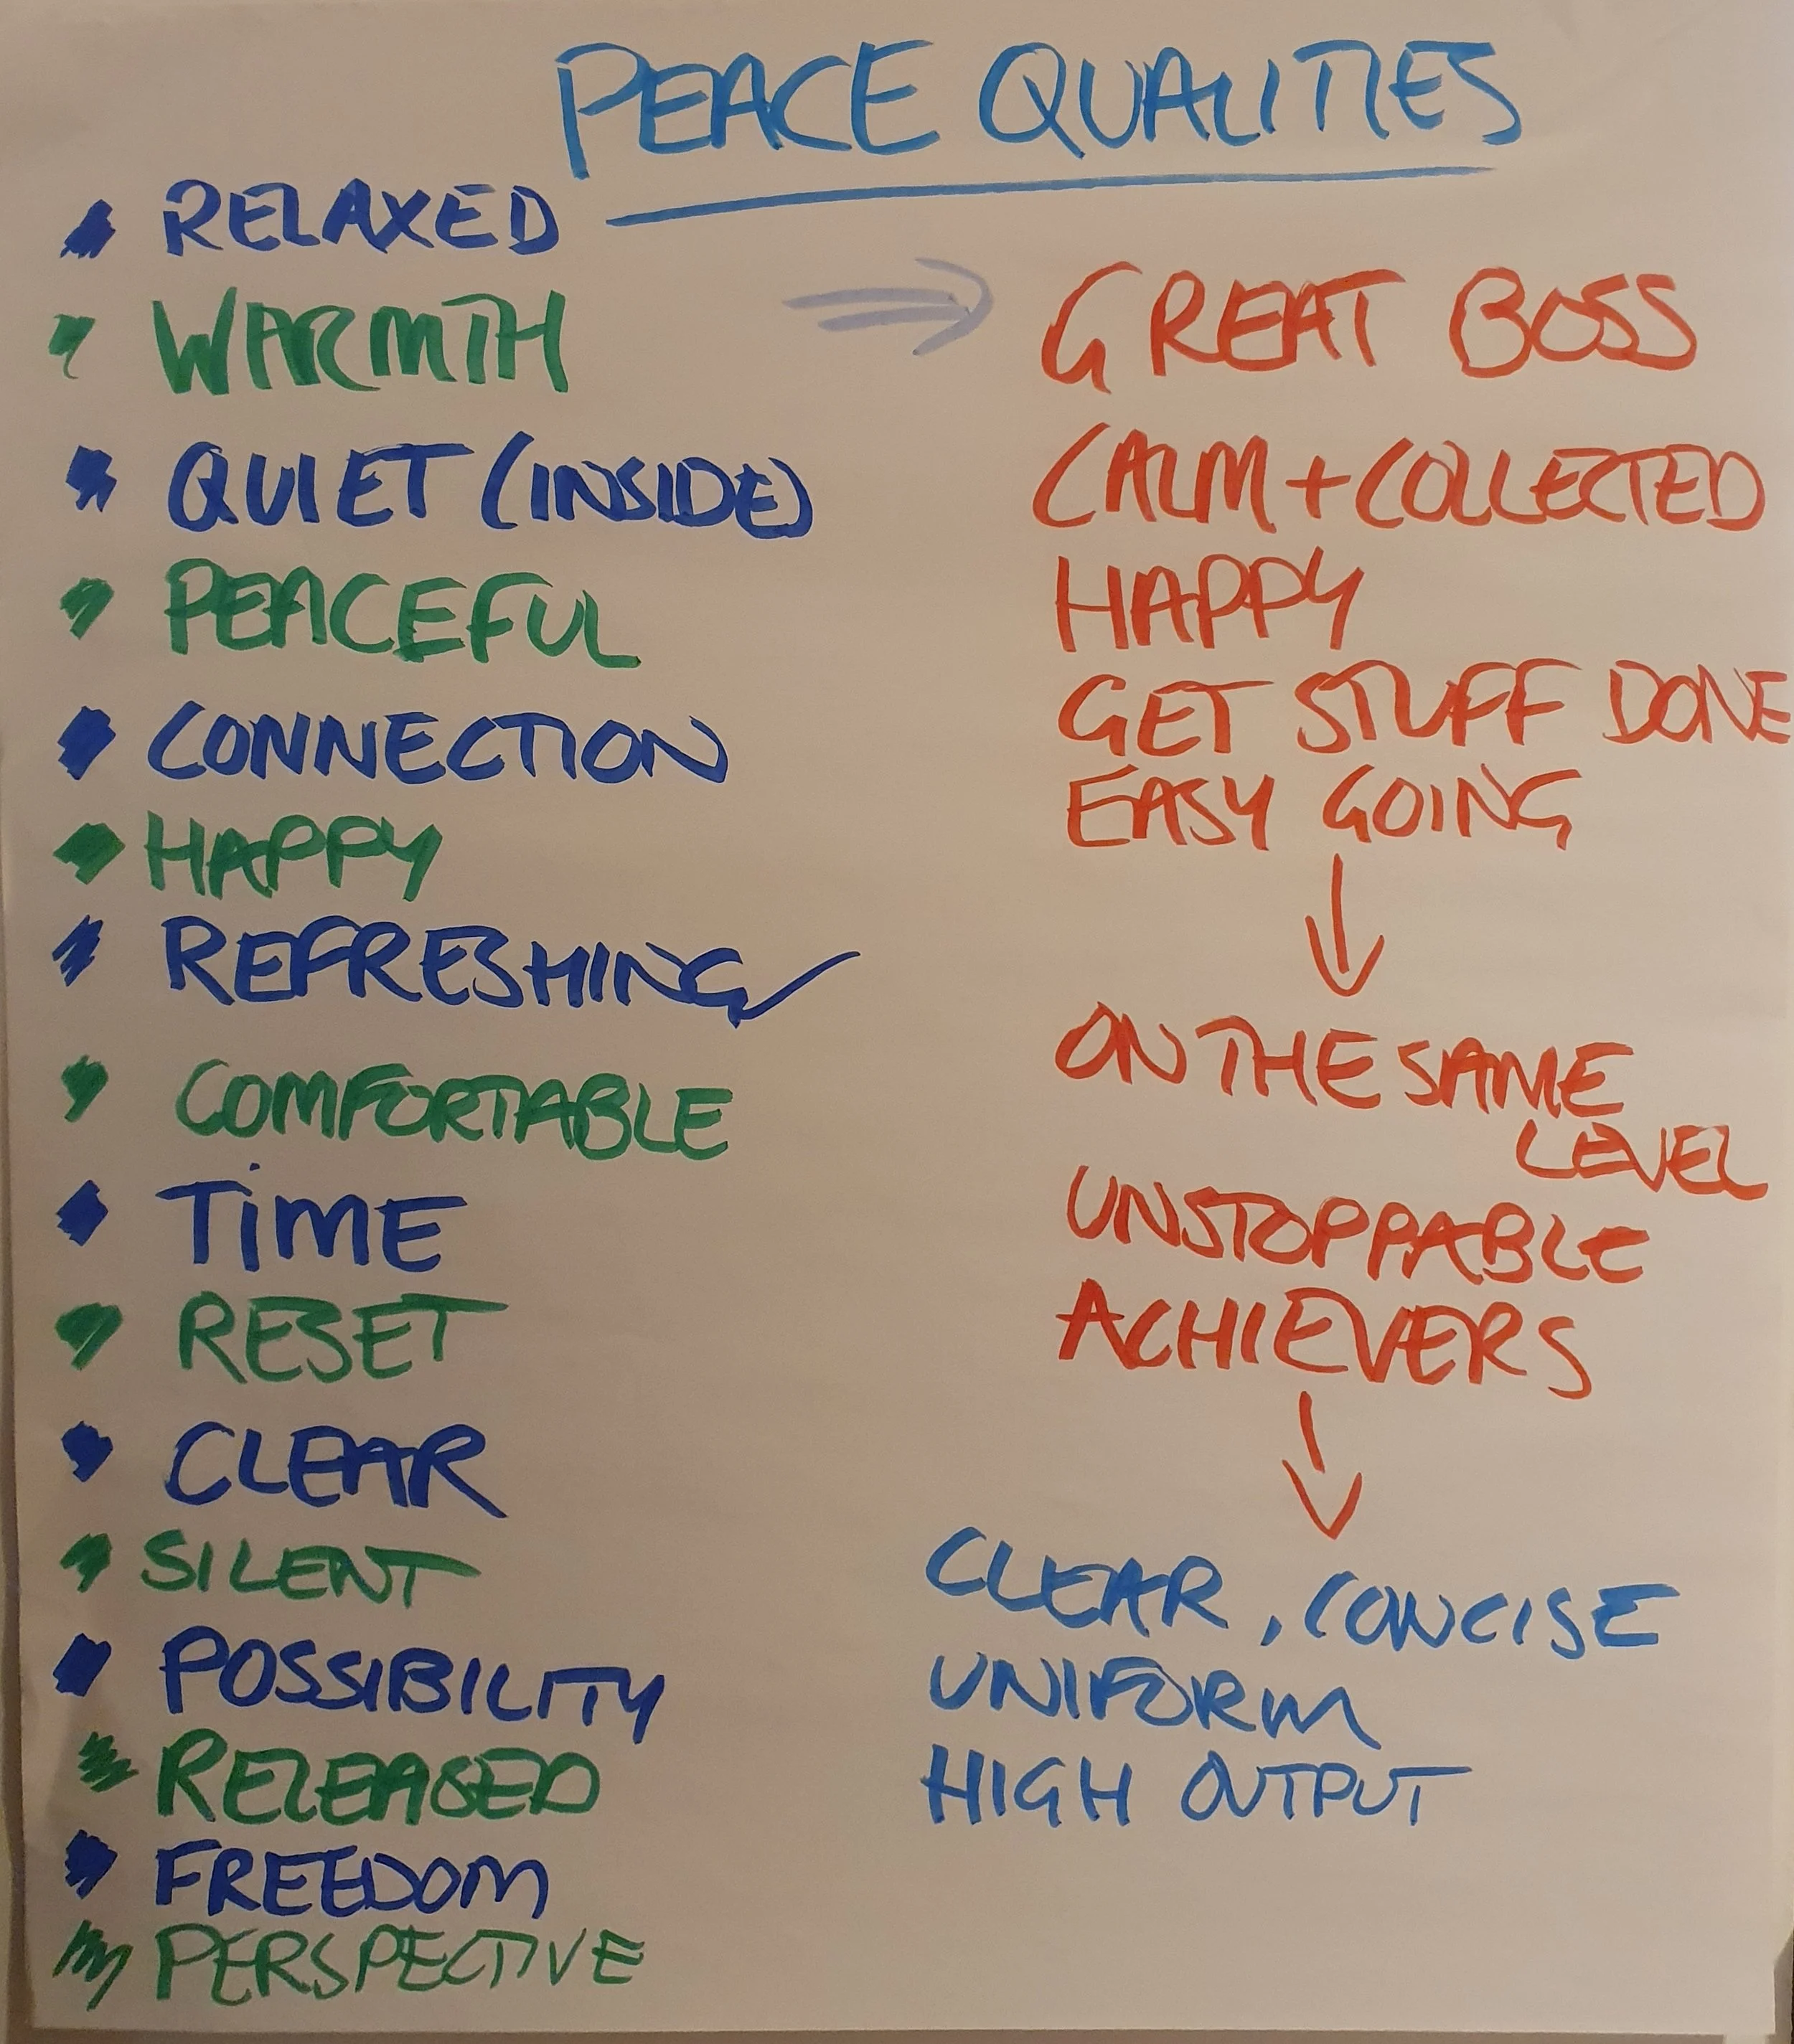 PEACE QUALITIES
RELAXED
WARMTH
QUIET (INSIDE)
PEACEFUL
CONNECTION
HAPPY
REFRESHING
COMFORTABLE
TIME
RESET
CLEAR
SILENT
POSSIBILITY
RELEASED
FREEDOM
PERSPECTIVE
GREAT BOSS
CALM + COLLECTED
HAPPY
GET STUFF DONE
EASY GOING
ON THE SAME
LEVEL
UNSTOPPABLE
ACHIEVERS
CLEAR, CONCISE
UNIFORM
HIGH OUTPUT